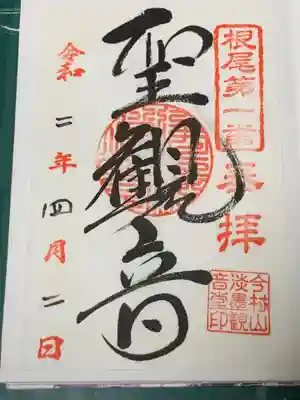 根尾第一番
奉拝
聖觀音
令和二年四月二日
今村山
淡墨観
音堂印